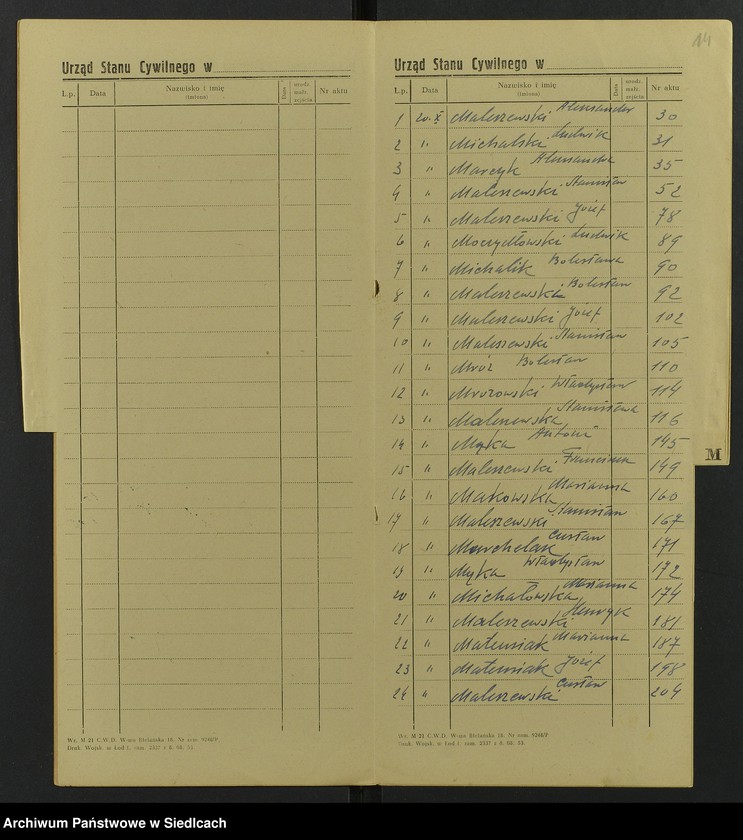 14
Urząd Stanu Cywilnego w
L.p. Data Nazwisko i imię (imiona) Data urodz. małż. zejścia Nr aktu
Wz. M 21 C.W.D. W-wa Bielańska 18. Nr zam. 9240/P
Druk. Wojsk. w Łodzi, zam. 2337 z 8. 08. 53.
Urząd Stanu Cywilnego w
L.p. Data Nazwisko i imię (imiona) Data urodz. małż. zejścia Nr aktu
1 20.X Maleszewski Aleksander 30
2 " Michalski Ludwik 31
3 " Marczyk Aleksandra 35
4 " Maleszewski Stanisław 52
5 " Maleszewski Józef 78
6 " Moczydłowski Ludwik 89
7 " Michalik Bolesława 90
8 " Maleszewski Bolesław 92
9 " Maleszewski Józef 102
10 " Maleszewski Stanisław 105
11 " Mróz Bolesław 110
12 " Mrozowski Władysław 114
13 " Maleszewska Stanisława 116
14 " Mąka Antoni 145
15 " Maleszewski Franciszek 149
16 " Makowska Marianna 160
17 " Maleszewski Stanisław 167
18 " Marchelak Czesław 171
19 " Mąka Władysław 172
20 " Michałowska Marianna 174
21 " Maleszewski Henryk 181
22 " Matusiak Marianna 187
23 " Matusiak Józef 198
24 " Maleszewski Czesław 204
M
Archiwum Państwowe w Siedlcach